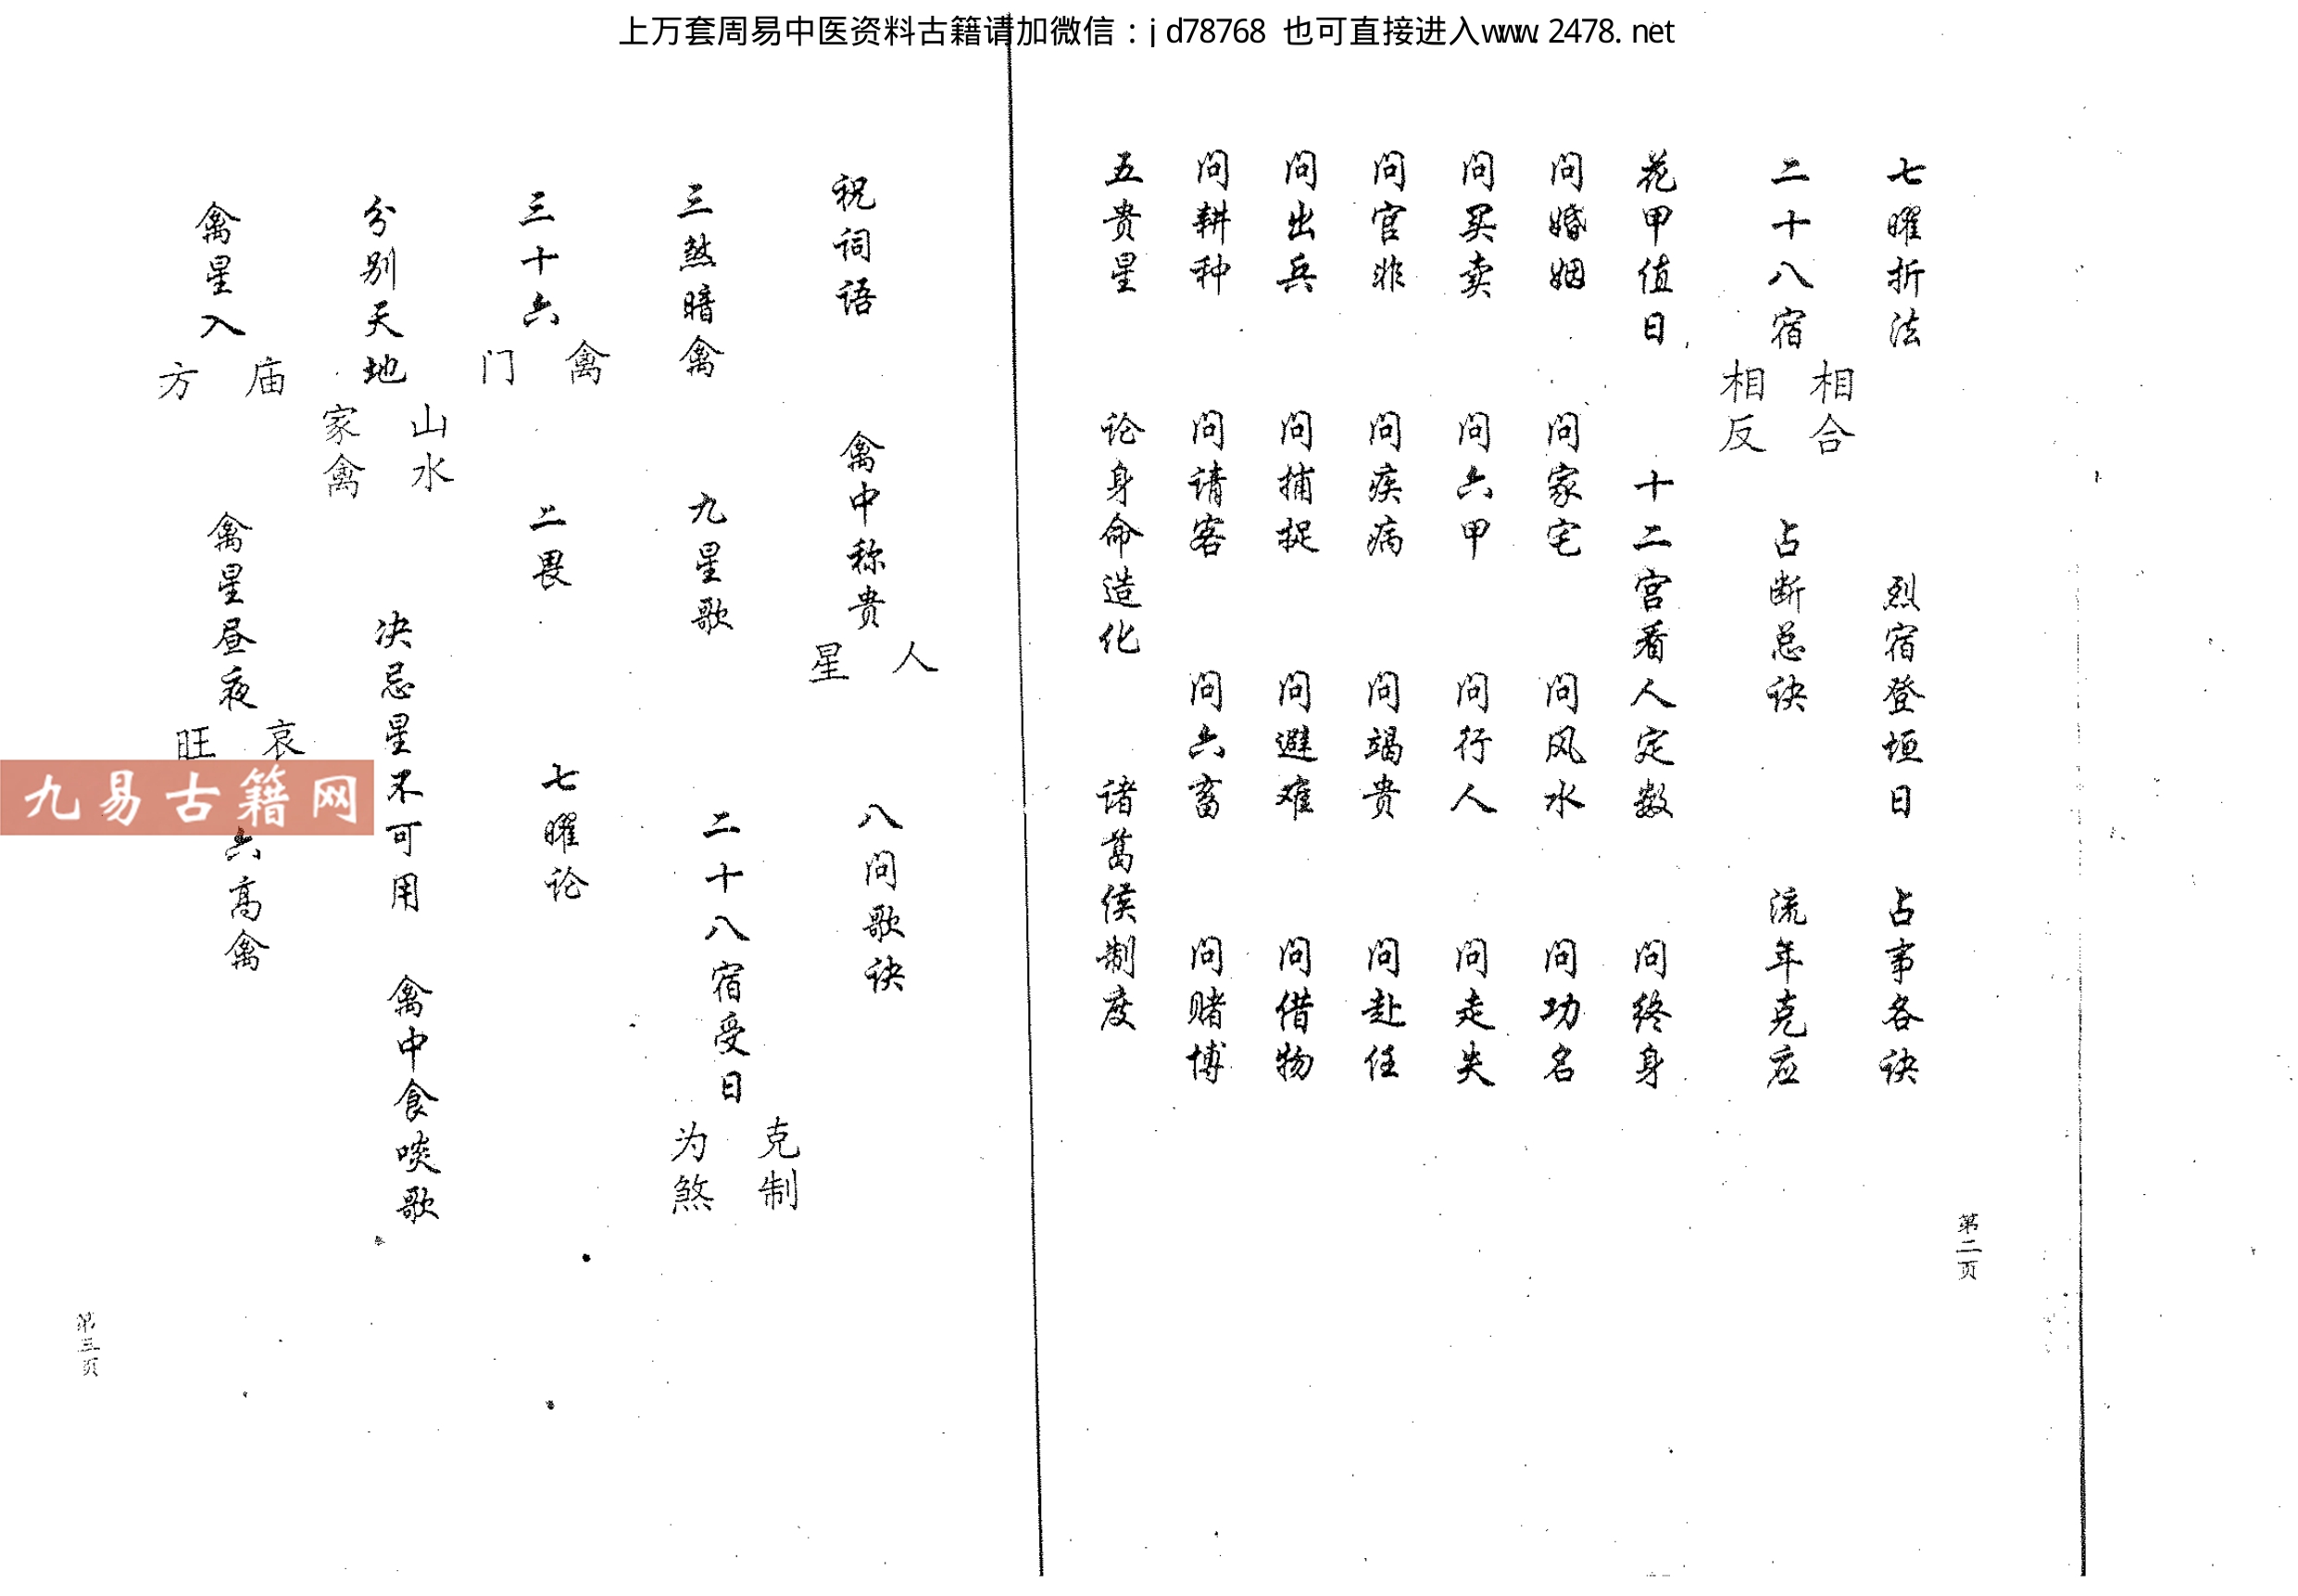 上万套周易中医资料古籍请加微信：jd78768 也可直接进入www.2478.net
七曜折法 烈宿登垣日 占事各诀
二十八宿相合相反 占断总诀 流年克应
花甲值日 十二宫看人定数 问终身
问婚姻 问家宅 问风水 问功名
问买卖 问六甲 问行人 问走失
问官非 问疾病 问竭贵 问赴任
问出兵 问捕捉 问避难 问借物
问耕种 问请客 问六畜 问赌博
五贵星 论身命造化 诸葛侯制度
第二页
祝词语 禽中称贵人星 八问歌诀
三煞暗禽 九星歌 二十八宿受日克制为煞
三十六禽门 二畏 七曜论
分别天地山水家禽 决忌星不可用 禽中食啖歌
禽星入庙方 禽星昼夜哀旺 六高禽
第三页
九易古籍网